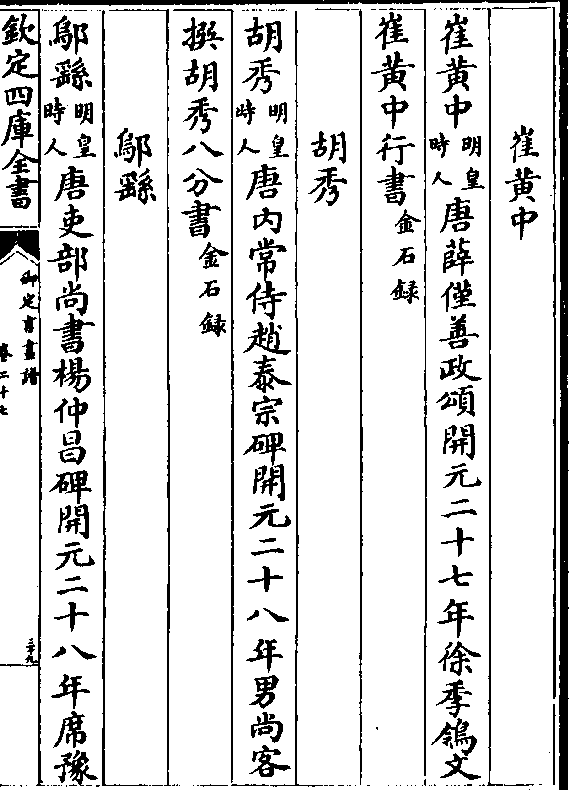 崔黃中
崔黃中明皇時人唐薛僅善政頌開元二十七年徐季鴇文
崔黃中行書金石録
胡秀
胡秀明皇時人唐内常侍趙泰宗碑開元二十八年男尚客
撰胡秀八分書金石録
鄔繇
鄔繇明皇時人唐吏部尚書楊仲昌碑開元二十八年席豫
欽定四庫全書
御定書畫譜
卷二十七